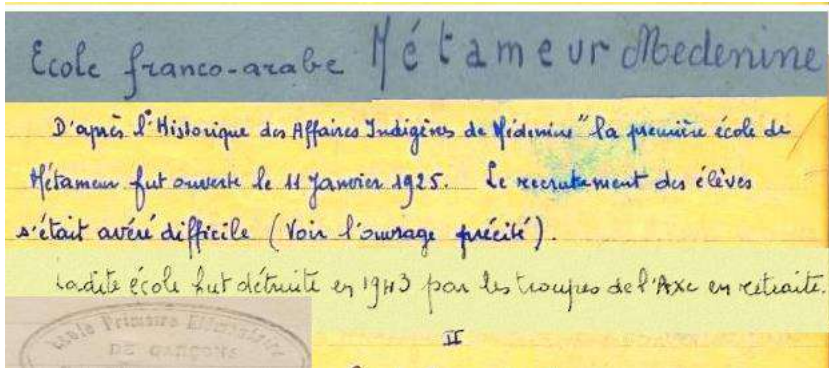 Ecole franco-arabe Métameur Medenine
D'après l'"Historique des Affaires Indigènes de Médenine" la première école de
Métameur fut ouverte le 11 Janvier 1925. Le recrutement des élèves
s'était avéré difficile (Voir l'ouvrage précité).
Ladite école fut détruite en 1943 par les troupes de l'Axe en retraite.
Ecole Primaire Elémentaire
DE GARÇONS
II